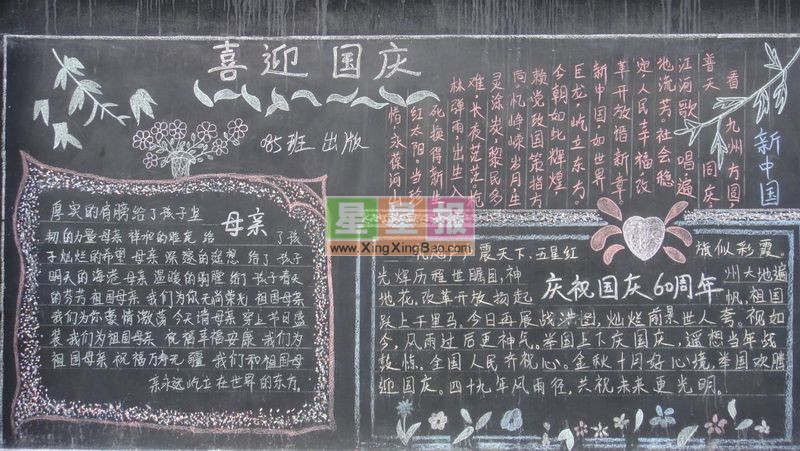 喜迎国庆
085班 出版
母亲
厚实的肩膀给了孩子坐
韧的力量母亲 祥和的脸龙 给了孩
子灿烂的希望 母亲 深邃的遐想 给了孩子
明天的海港 母亲 温暖的胸膛 给了孩子春天
的芳芳 祖国母亲 我们为你无尚荣光 祖国母亲
我们为你豪情激荡 今天请母亲 穿上节日盛
装 我们为祖国母亲 祝福幸福安康 我们为
祖国母亲 祝福万寿无疆 我们和祖国母
亲永远屹立在世界的东方。
新中国
看 九州方圆，
普天 同庆，
江河歌 唱，遍
地流芳。社会稳
定人民幸福，改
革开放谱新章。
新中国，如世界
巨龙，屹立东方。
今朝如此辉煌
赖党政国策指方
同忆峥嵘岁月生
灵涂炭，黎民多
难，长夜茫茫
林弹雨，出生入
死，换得新
红太阳。当
情，永葆
庆祝国庆60周年
震天下，五星红 旗似彩霞。
光辉历程世瞩目，神 州大地遍
地花，改革开放扬起 帆，祖国
跃上千里马，今日再展战洪图，灿烂前景世人夸。视如
今，风雨过后更神气。举国上下庆国庆，遥想当年战
鼓惊。全国人民齐祝心。金秋十月好心境，举国欢腾
迎国庆。四十九年风雨径，共祝未来更光明。
星星报
www.XingXingBao.com